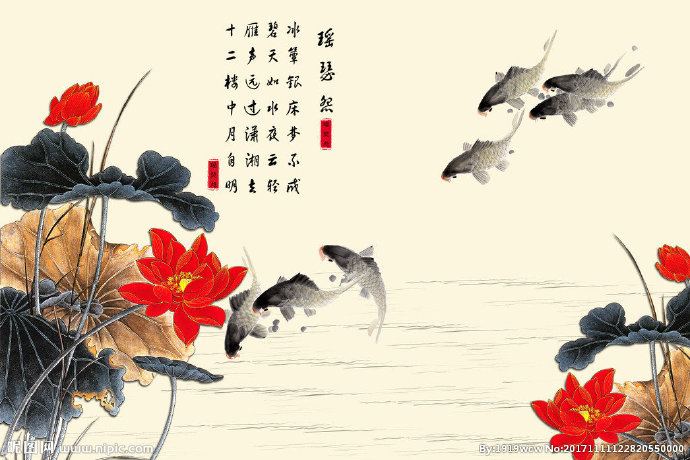 瑶瑟怨
冰簟银床梦不成
碧天如水夜云轻
雁声远过潇湘去
十二楼中月自明
昵图网 www.nipic.com
By:1919wcw No:20171111122820550000